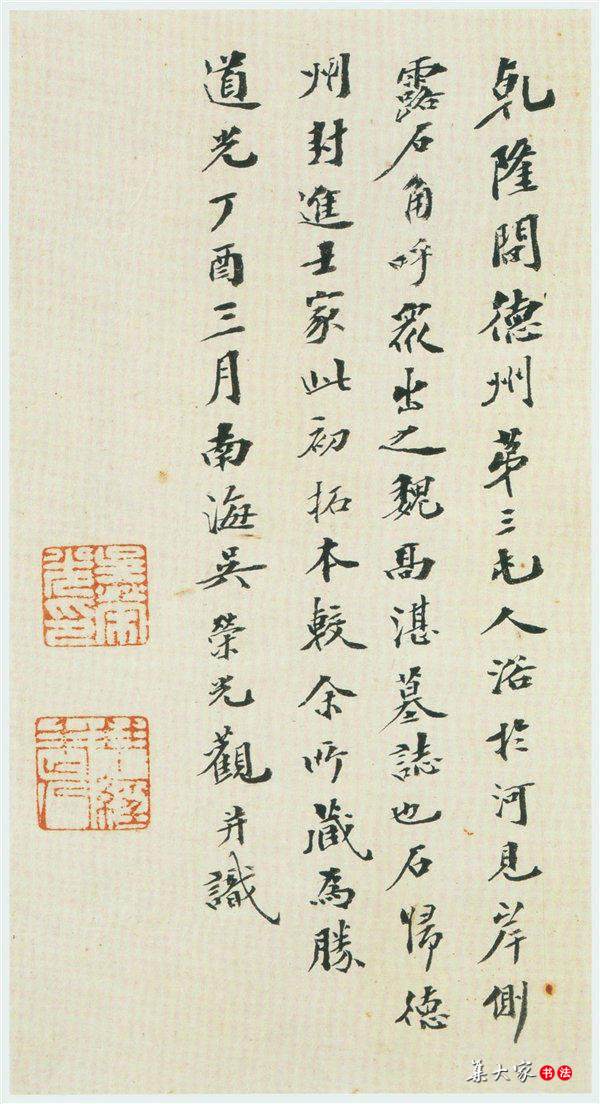 乹隆間德州第三屯人浴於河見岸側
露石角呼眾出之魏高湛墓誌也石歸德
州封進士家此初拓本較余所藏為勝
道光丁酉三月南海吳榮光觀并識
吳榮光印
集大家书法